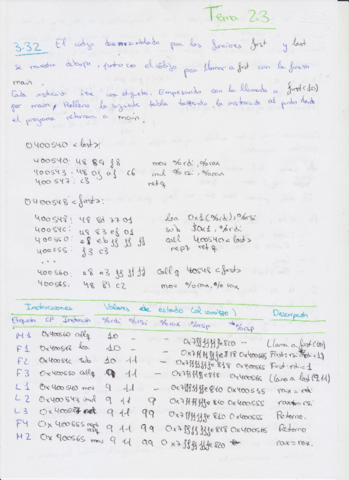 Tema 2.3
3.32 El código desensamblado por las funciones first y last
se muestra debajo, junto con el código para llamar a first con la función
main.
Cada instrucción tiene una etiqueta. Empezando con la llamada a first(10)
por main, Rellena la siguiente tabla the instrucción al punto donde
el programa retorna a main.
0400540 <last>:
400540: 48 89 f8 mov %rdi, %rax
400543: 48 0f af c6 imul %rsi, %rax
400547: c3 retq
0400548 <first>:
400548: 48 8d 77 01 lea 0x1(%rdi), %rsi
40054c: 48 83 ef 01 sub $0x1, %rdi
400550: e8 eb ff ff ff call 400540 <last>
400555: f3 c3 repz retq
...
400560: e8 e3 ff ff ff callq 400548 <first>
400565: 48 89 c2 mov %rax, %rdx
Instrucciones Valores de estado (al comienzo) Descripción
Etiqueta CP Instrucción %rdi %rsi %rax %rsp *%rsp
M1 0x400560 callq 10 - - 0x7fffffffe820 - Llama a first(10)
F1 0x400548 lea 10 - - 0x7fffffffe818 0x400565
F2 0x40054c sub 10 11 - 0x7fffffffe818 0x400565
F3 0x400550 callq 9 11 - 0x7fffffffe818 0x400565 Llama a last(9,11)
L1 0x400540 mov 9 11 - 0x7fffffffe810 0x400555
L2 0x400543 imul 9 11 9 0x7fffffffe810 0x400555
L3 0x400547 retq 9 11 99 0x7fffffffe810 0x400555 Retorno
F4 0x400555 repz retq 9 11 99 0x7fffffffe818 0x400565 Retorno
M2 0x400565 mov 9 11 99 0x7fffffffe820 -